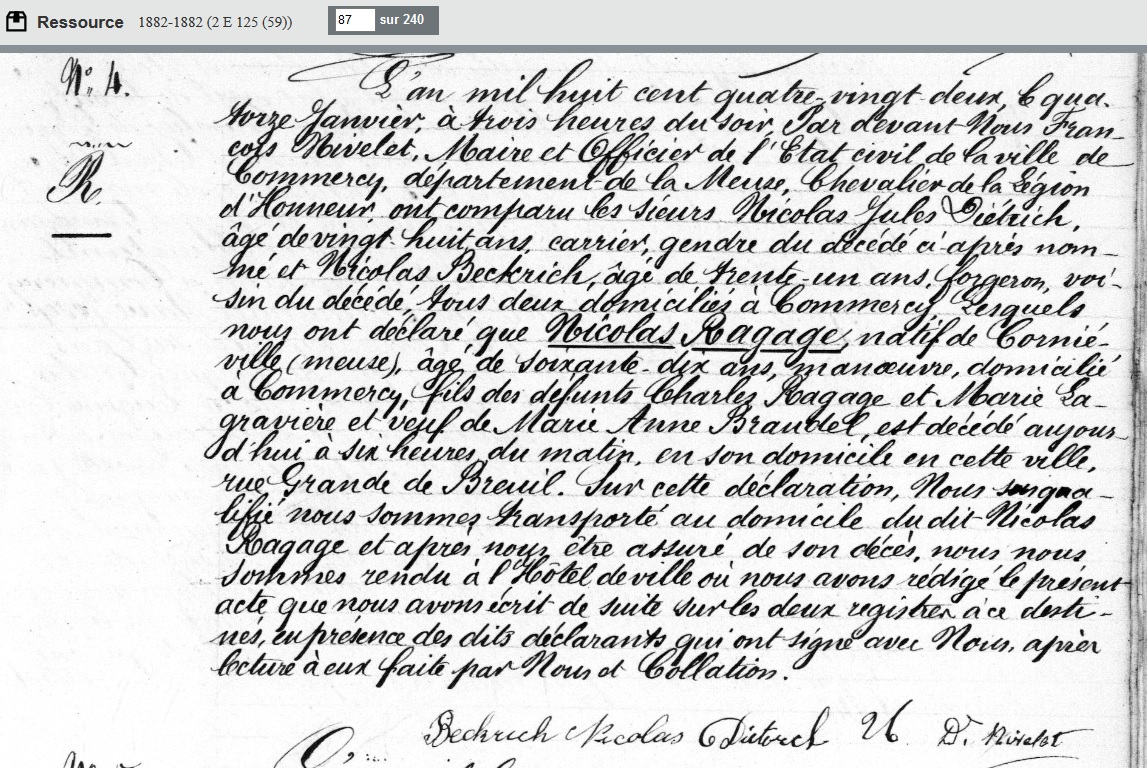 Ressource 1882-1882 (2 E 125 (59)) 87 sur 240
N° 4
R.
L'an mil huit cent quatre-vingt-deux, le qua-
torze Janvier, à trois heures du soir, Par devant Nous Fran-
çois Nivelet, Maire et Officier de l'Etat civil de la ville de
Commercy, département de la Meuse, Chevalier de la Légion
d'Honneur, ont comparu les sieurs Nicolas Jules Diétrich,
âgé de vingt-huit ans, carrier, gendre du décédé ci-après nom-
mé et Nicolas Beckrich, âgé de trente-un ans, forgeron, voi-
sin du décédé, tous deux domiciliés à Commercy, Lesquels
nous ont déclaré que Nicolas Ragage, natif de Cornié-
ville (meuse), âgé de soixante-dix ans, manœuvre, domicilié
à Commercy, fils des défunts Charles Ragage et Marie La-
gravière et veuf de Marie Anne Braudel, est décédé aujour-
d'hui à six heures du matin, en son domicile en cette ville,
rue Grande de Breuil. Sur cette déclaration, Nous susqua-
lifié nous sommes transporté au domicile du dit Nicolas
Ragage et après nous être assuré de son décès, nous nous
sommes rendu à l'Hôtel de ville où nous avons rédigé le présent
acte que nous avons écrit de suite sur les deux registres à ce desti-
nés, en présence des dits déclarants qui ont signé avec Nous, après
lecture à eux faite par Nous et Collation.
Beckrich Nicolas Dietrich N D. Nivelet